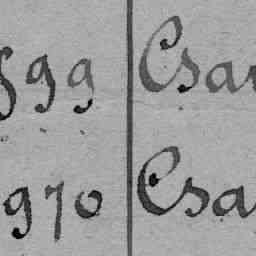 599 Csa
970 Csa